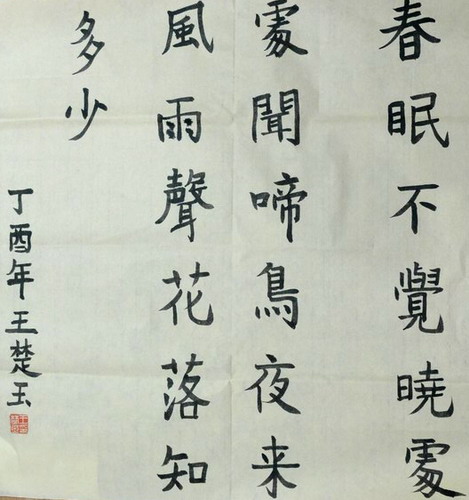 春眠不覺暁處
處聞啼鳥夜来
風雨聲花落知
多少
丁酉年王楚玉